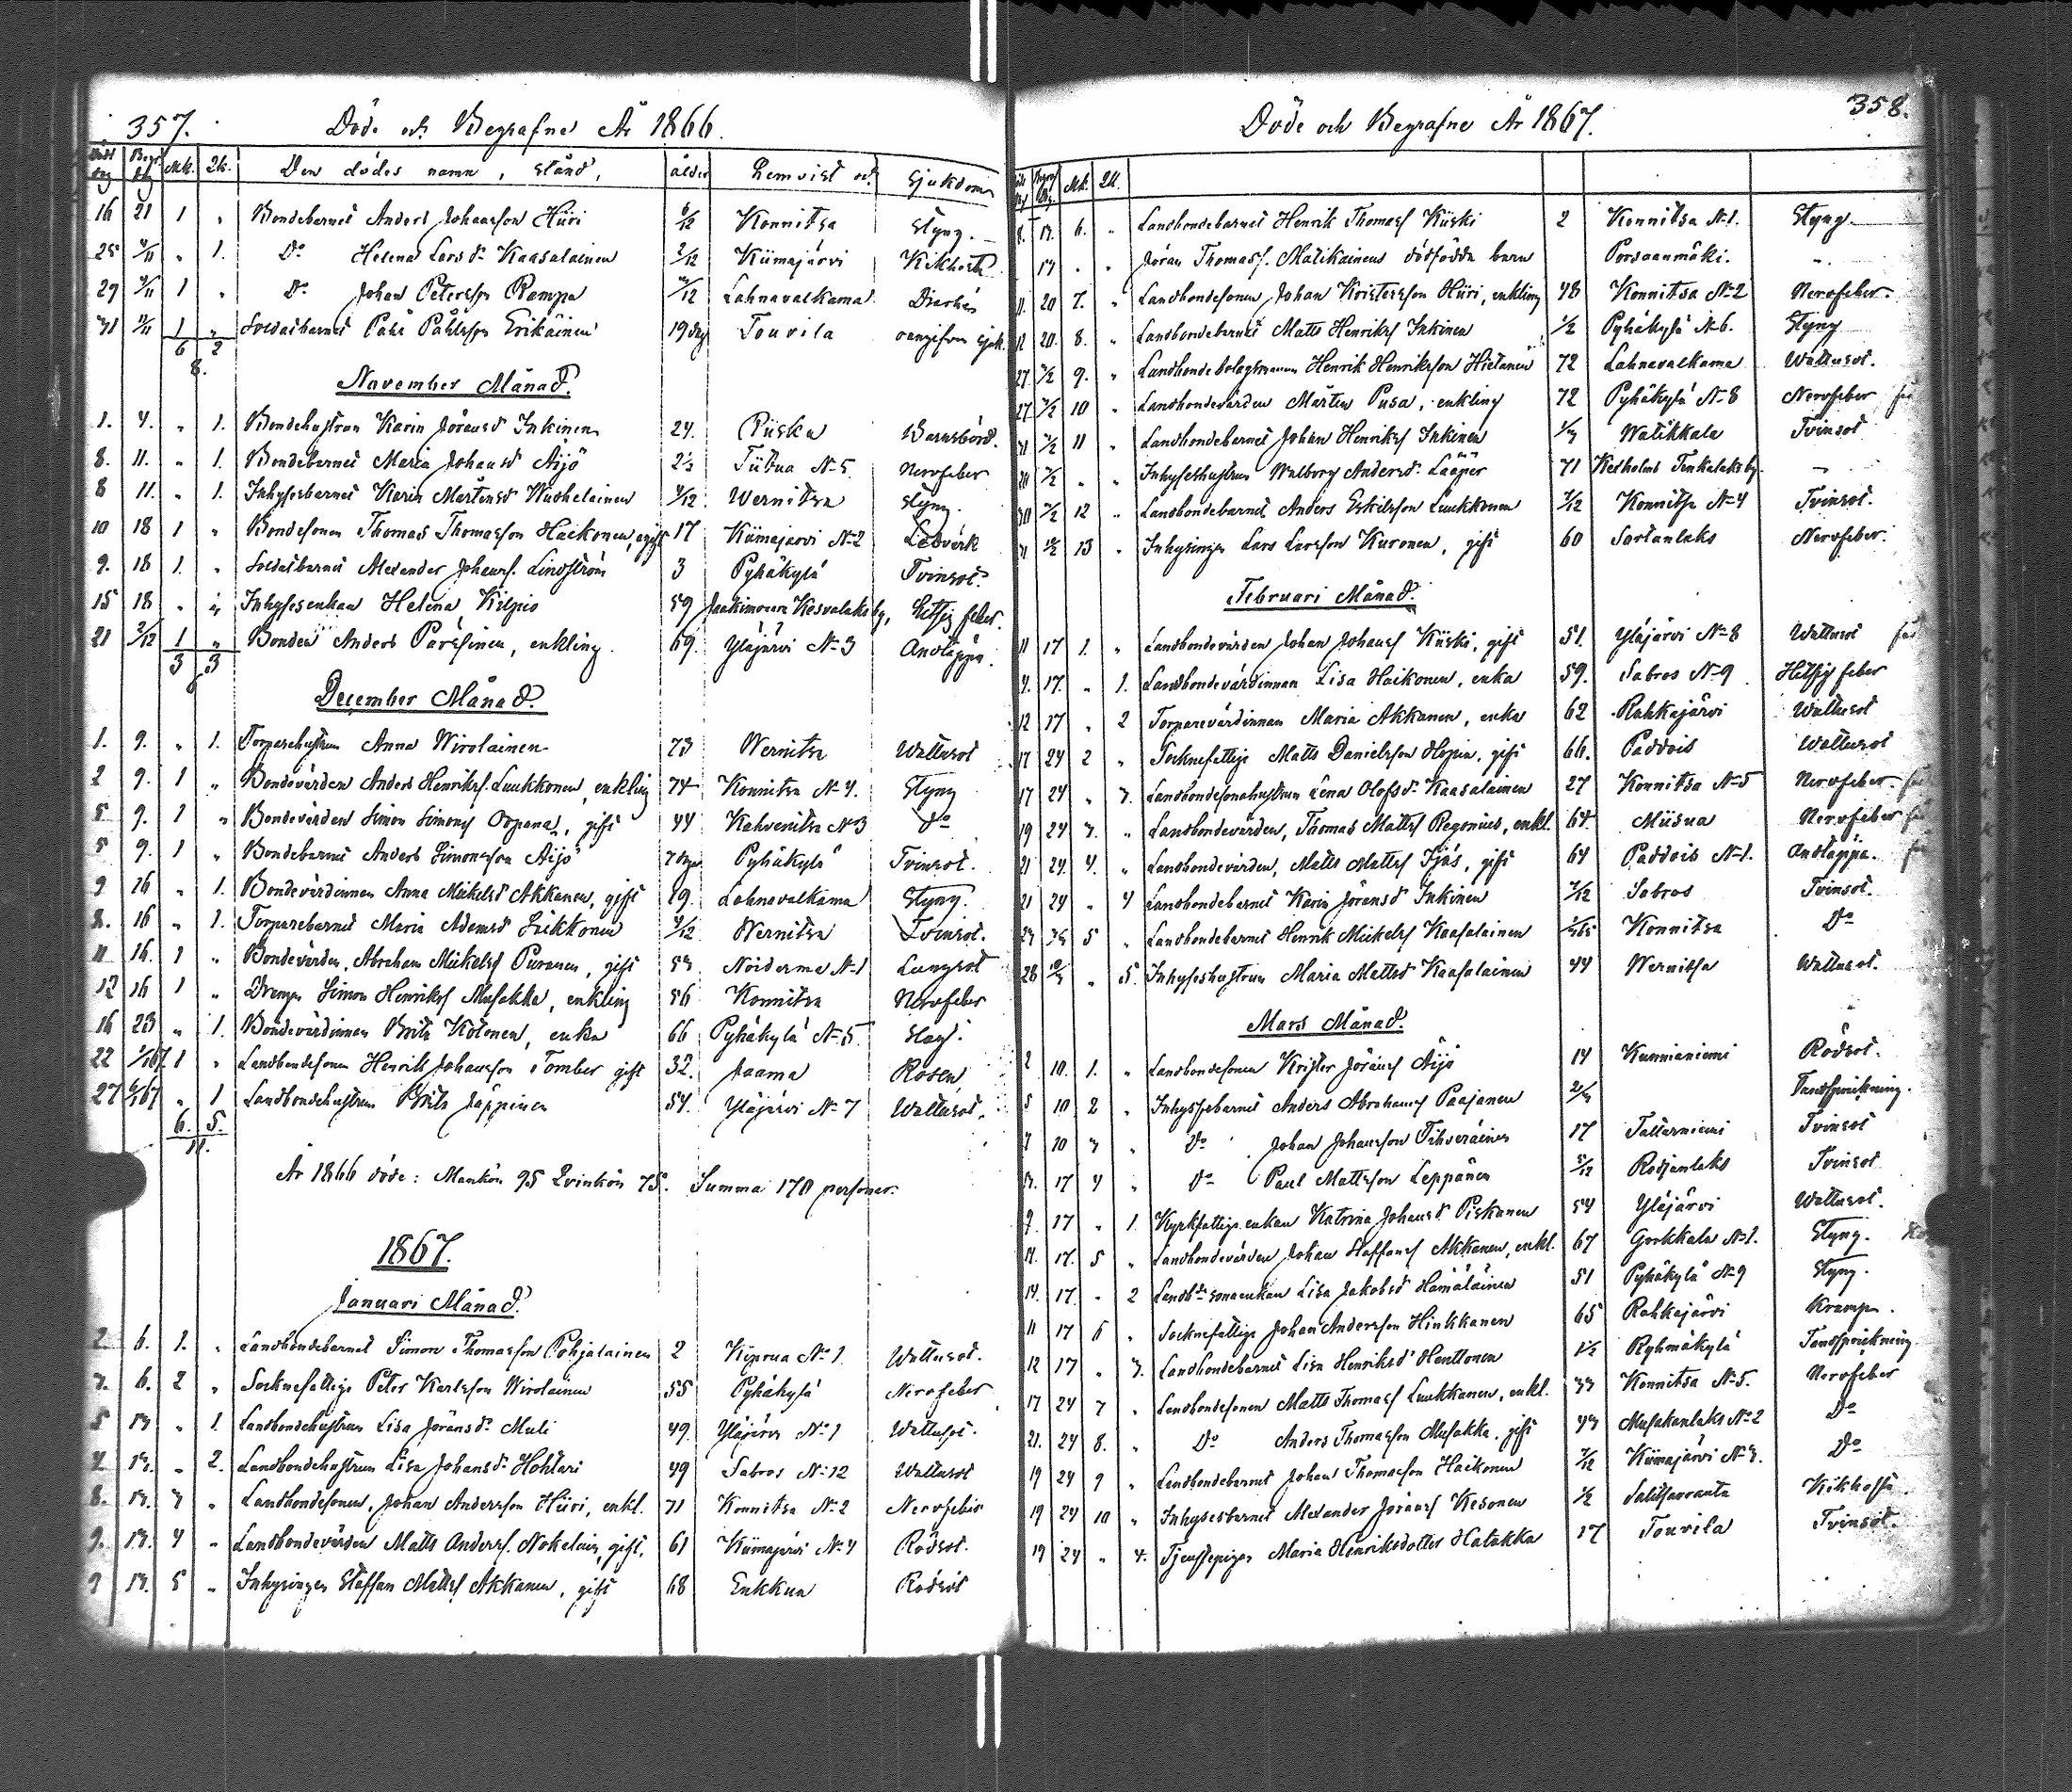 357. Döde och Begrafne År 1866.
Död dag Begr. dag Mk. Qk. Den dödes namn, stånd, ålder Hemvist och Sjukdom
16 21 1 " Bondebarnet Anders Johansson Hüri 6/12 Konnitsa Styng.
25 4/11 " 1. Do Helena Larsdr Kaasalainen 2/12 Kiimajärvi Kikhosta
29 4/11 1 " Do Johan Petersson Rampa /12 Lahnavalkama Diarhé
31 11/11 1 " Soldatbarnet Påhl Påhlsson Erikäinen 19 dag Touvila oangifven sjuk.
6 2
8.
November Månad.
1. 4. " 1. Bondehustrun Karin Jöransd Inkinen 24. Püska Barnsbörd.
8. 11. " 1. Bondebarnet Maria Johansd Äijö 2½ Tiitua No 5 Nervfeber
8 11. " 1. Inhysesbarnet Karin Mårtensd Wauhelainen 4/12 Wernitsa Styng.
10 18 1 " Bondesonen Thomas Thomasson Haikonen, ogift 17 Kiimajärvi No 2 Ledvärk
9. 18 1. " Soldatbarnet Alexander Johanss. Lindström 3 Pyhäkylä Tvinsot.
15 18 " " Inhysesenkan Helena Kilpiö 59 Jaakimvaara Kesvalaks by, Hettsig feber.
21 2/12 1 " Bonden Anders Pärssinen, enkling 69. Yläjärvi No 3 Andtäppa.
3 3
6
December Månad.
1. 9. " 1. Torparehustrun Anna Wirolainen 73 Wernitsa Wattusot
2 9. 1 " Bondevärden Anders Henrikss. Luukkonen, enkling 74 Konnitsa No 4. Styng
5 9. 1 " Bondevärden Simon Simonss Orpana, gift 44 Kahvenitsa No 3 Do
5 9. 1 " Bondebarnet Anders Simonsson Äijö 7 dagar Pyhäkylä Tvinsot.
9 16 " 1. Bondevärdinnan Anna Mickelsd Akkanen, gift 29. Lahnavalkama Styng.
8. 16 " 1. Torparebarnet Maria Adamsd Sikkonen 4/12 Wernitsa Tvinsot.
11 16. 1 " Bondevärden, Abraham Mickelss Puranen, gift 53 Noiderma No 1 Lungsot
12 16 1 " Drengen Simon Henrikss Musakka, enkling 56 Konnitsa Nervfeber
16 23 " 1. Bondevärdinnan Brita Kotonen, enka 66 Pyhäkylä No 5. Slag.
22 1/1 67. 1 " Landbondesonen Henrik Johansson Tomber gift 32. Jaama Rosen
27 6/1 67 " 1 Landbondehustrun Brita Jäppinen 54. Yläjärvi No 7 Wattusot.
6. 5.
11.
År 1866 döde: Mankön 95 Qvinkön 75. Summa 170 personer.
1867.
Januari Månad.
2 6. 1. " Landbondebarnet Simon Thomasson Pohjalainen 2 Kiprua No 1. Wattusot.
3. 6. 2 " Socknefattige Peter Karlsson Wirolainen 55 Pyhäkylä Nervfeber
5 13 " 1. Landbondehustrun Lisa Jöransdr Muli 49. Yläjärvi No 1 Wattusot.
4 13. " 2. Landbondehustrun Lisa Johansdr Hohtari 49 Sabros No 12 Wattusot
8. 13. 3 " Landbondesonen, Johan Andersson Hüri, enkl. 71 Konnitsa No 2 Nervfeber
9. 13. 4 " Landbondevärden Matts Anderss. Nokelain, gift. 61 Kiimajärvi No 4 Rödsot.
9 13. 5 " Inhysingen Staffan Mattss Akkanen, gift 68 Enkkua Rödsot
Döde och Begrafne År 1867. 358.
Död dag Begraf. dag Mk. Qk.
8. 13. 6. " Landbondebarnet Henrik Thomass Kiiski 2 Konnitsa No 1. Styng
13 " " Jöran Thomass. Matikainens dödfödda barn Porsaanmäki. "
11. 20 7. " Landbondesonen Johan Kristersson Hüri, enkling 48 Konnitsa No 2 Nervfeber.
12 20. 8. " Landbondebarnet Matts Henrikss Inkinen ½ Pyhäkylä No 6. Styng
27 3/2 9. " Landbonde bolagsmannen Henrik Henriksson Hietanen 72 Lahnavalkama Wattusot.
27 3/2 10 " Landbondevärden Mårten Pusa, enkling 72 Pyhäkylä No 8 Nervfeber
3/2 11 " Landbondebarnet Johan Henrikss Inkinen Watikkala Tvinsot
3/2 " " Inhyseshustrun Walborg Andersdr Lääperi 71 Kexholms Tenkalaks by. —
30 3/2 12 " Landbondebarnet Anders Eskilsson Luukkonen 3/12 Konnitsa No 4 Tvinsot.
31 10/2 13 " Inhysingen Lars Larsson Kuronen, gift 60 Sortanlaks Nervfeber.
Februari Månad.
11 17 1. " Landbondevärden Johan Johanss Kiiski, gift 51. Yläjärvi No 8 Wattusot
4. 17. " 1. Landbondevärdinnan Lisa Haikonen, enka 59. Sabros No 9 Hetsig feber
12 17 " 2 Torparevärdinnan Maria Akkanen, enka 62 Rahkajärvi Wattusot
17 24 2 " Socknefattige Matts Danielsson Hopia, gift 66. Paddois Wattusot
17 24 " 3. Landbondesonehustrun Lena Olofsdr Kaasalainen 27 Konnitsa No 5 Nervfeber
19 24 3. " Landbondevärden, Thomas Mattss Regonius, enkl. 64. Miisua Nervfeber
21 24. 4. " Landbondevärden, Matts Mattss Tjäs, gift 64 Paddois No 1. Andtäppa.
21 24 " 4 Landbondebarnet Karin Jöransd Inkinen 7/12 Sabros Tvinsot.
23 3/3 5 " Landbondebarnet Henrik Mickelss Kaasalainen Konnitsa Do
28 10/3 " 5. Inhyseshustrun Maria Mattsd Kaasalainen 44 Wernitsa Wattusot.
Mars Månad.
2 10. 1. " Landbondesonen Krister Jöranss Äijö 14 Kunnianiemi Rödsot.
5 10 2 " Inhysesbarnet Anders Abrahamss Paajanen Tandsprickning.
7 10 3 " Do Johan Johansson Tihveräinen 17 Tallarniemi Tvinsot
13. 17 4 " Do Paul Mattsson Leppänen 5/12 Rodjanlaks Tvinsot
9. 17 " 1. Kyrkfattige enkan Katrina Johansd Piskanen 54 Yläjärvi Wattusot.
11. 17. 5 " Landbondevärden Johan Staffanss Akkanen, enkl. 67 Gorkkala No 1. Styng.
14. 17. " 2 Landbde sonaenkan Lisa Jakobsd Hämäläinen 51 Pyhäkylä No 9 Styng.
11 17 6 " Socknefattige Johan Andersson Hinkkanen 65 Rahkajärvi Kramp.
12 17 " 3. Landbondebarnet Lisa Henriksdr Henttonen 1½ Ryhmäkylä Tandsprickning
17 24 7 " Landbondesonen Matts Thomass Luukkanen, enkl. 33 Konnitsa No 5. Nervfeber
21. 24 8. " Do Anders Thomasson Musakka, gift 43 Musakanlaks No 2 Do
19 24 9 " Landbondebarnet Johan Thomasson Haikonen 7/12 Kiimajärvi No 3. Do
19 24 10 " Inhysesbarnet Alexander Jöranss Kesonen ½ Salitsanranta Kikhosta.
19 24 " 4. Tjenstepigan Maria Henriksdotter Hatakka 17 Touvila Tvinsot.